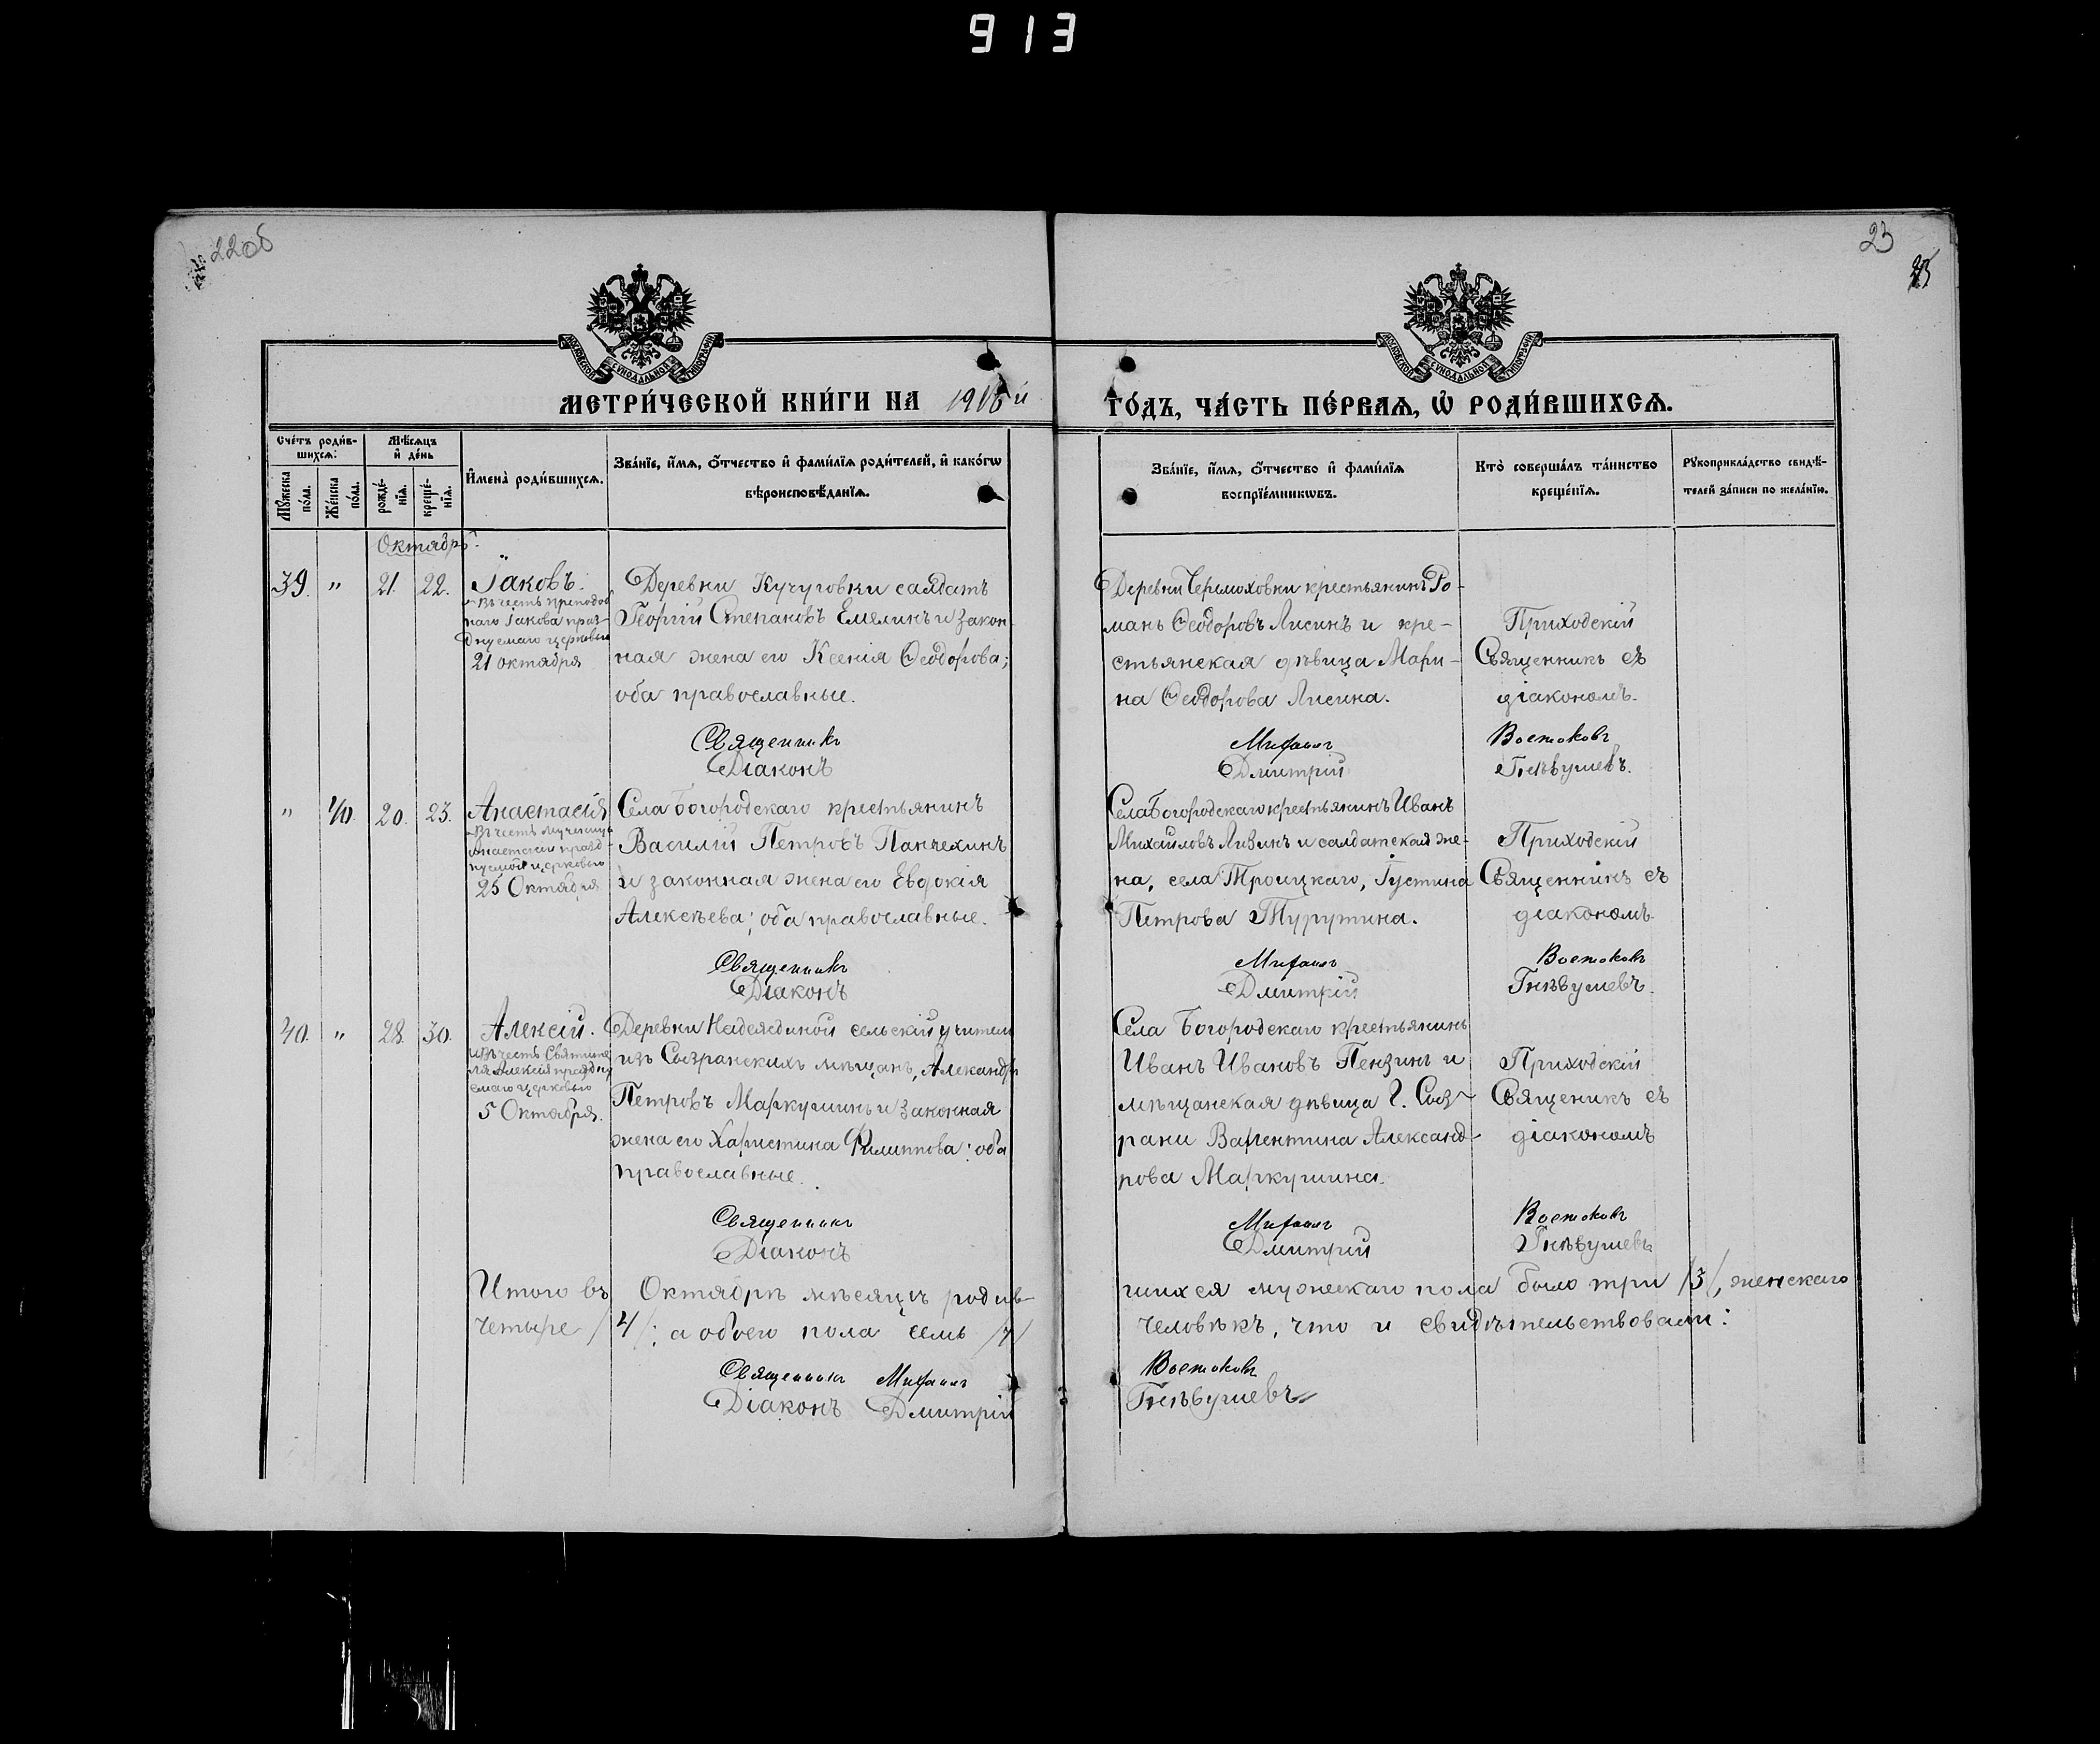 913
22об
23
МОСКОВСКОЙ СѴНОДАЛЬНОЙ ТИПОГРАФІИ
МОСКОВСКОЙ СѴНОДАЛЬНОЙ ТИПОГРАФІИ
МЕТРИ́ЧЕСКОЙ КНИ́ГИ НА 1916 й
ГО́ДЪ, ЧА́СТЬ ПЕ́РВАЯ, Ѡ РОДИ́ВШИХСЯ.
Сче́тъ роди́в-
шихся:
Мꙋжеска по́ла.
Же́нска по́ла.
Мѣ́сяцъ
и де́нь
рожде́-
нїя.
креще́-
нїя.
Имена̀ роди́вшихся.
Зва́нїе, и́мя, о́тчество и фами́лїя роди́телей, и како́гѡ
вѣроисповѣ́данїя.
Зва́нїе, и́мя, о́тчество и фами́лїя
воспрїе́мникѡвъ.
Кто̀ соверша́лъ та́инство
креще́нїя.
Рꙋкоприкла́дство свидѣ́-
телей за́писи по жела́нїю.
Октябрь.
39. " 21. 22. Іаковъ.
Въ честь преподоб
наго Іакова праз-
днуемаго церковью
21 октября
Деревни Кучуровки салдатъ
Георгій Степановъ Емелинъ и закон
ная жена его Ксенія Ѳеодорова;
оба православные.
Деревни Чермоховки крестьянинъ Ро-
манъ Ѳеодоровъ Лисинъ и кре-
стьянская дѣвица Мари-
на Ѳеодорова Лисина.
Приходскій
Священникъ съ
діакономъ.
Священникъ Михаилъ Востоковъ
Діаконъ Дмитрій Гнѣвушевъ.
" 40. 20. 23. Анастасія
Въ честь мученицы
Анастасіи празд-
нуемой церковью
25 Октября
Села Богородскаго крестьянинъ
Василій Петровъ Панчехинъ
и законная жена его Евдокія
Алексѣева; оба православные.
Села Богородскаго крестьянинъ Иванъ
Михайловъ Ливинъ и салдатская же-
на, села Троицкаго, Густина
Петрова Турутина.
Приходскій
Священникъ съ
діакономъ.
Священникъ Михаилъ Востоковъ
Діаконъ Дмитрій Гнѣвушевъ.
40. " 28. 30. Алексій.
Въ честь Святите
ля Алексія праздну
емаго церковью
5 Октября.
Деревни Надеждиной сельскій учитель
изъ Сызранскихъ мѣщанъ, Александръ
Петровъ Маркушинъ и законная
жена его Харистина Филиппова: оба
православные.
Села Богородскаго крестьянинъ
Иванъ Ивановъ Пензинъ и
мѣщанская дѣвица г. Сыз-
рани Валентина Александ-
рова Маркушина.
Приходскій
Священикъ съ
діакономъ
Священникъ Михаилъ Востоковъ
Діаконъ Дмитрій Гнѣвушевъ
Итого въ Октябрѣ мѣсяцѣ родив-
шихся мужескаго пола было три /3/, женскаго
четыре /4/; а обоего пола семь /7/
человѣкъ, что и свидѣтельствовали:
Священникъ Михаилъ Востоковъ
Діаконъ Дмитрій Гнѣвушевъ